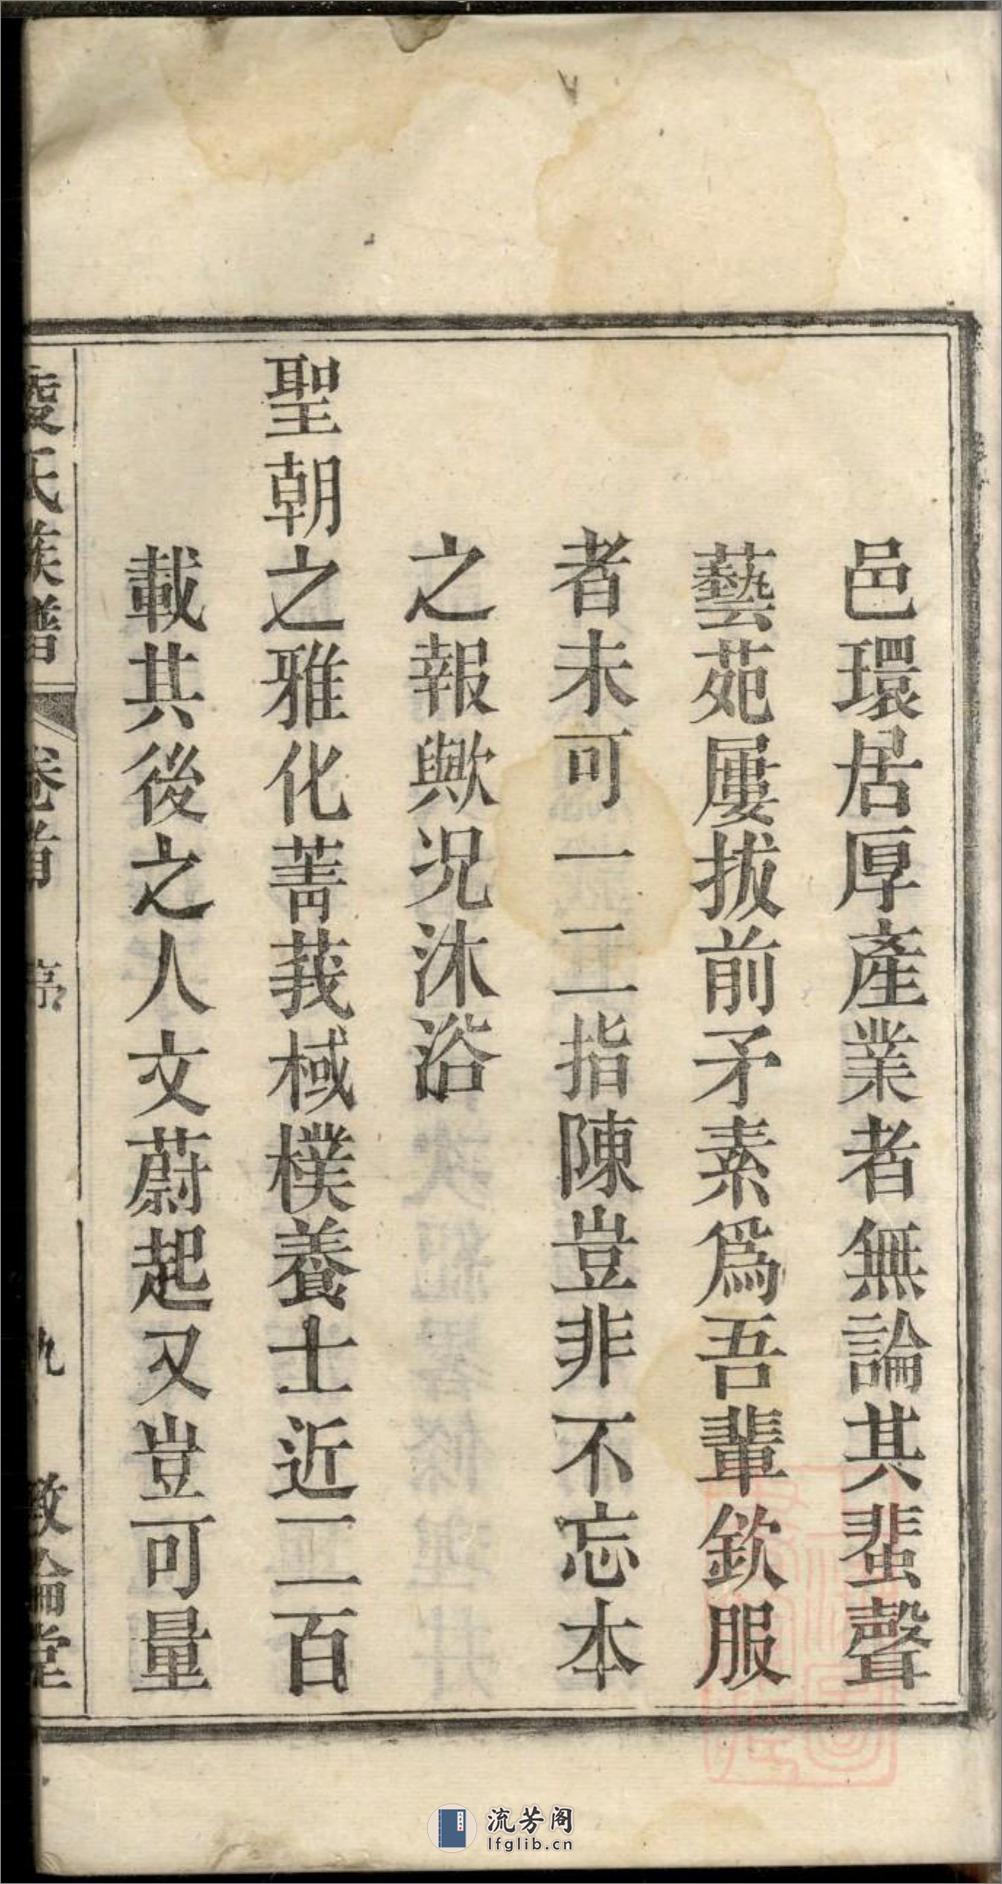 邑環居厚產業者無論其蜚聲
藝苑屢拔前矛素爲吾輩欽服
者未可一二指陳豈非不忘本
之報歟況沐浴
聖朝之雅化菁莪棫樸養士近二百
載其後之人文蔚起又豈可量
氏族譜
卷首
序
九
敦倫堂
流芳阁
lfglib.cn